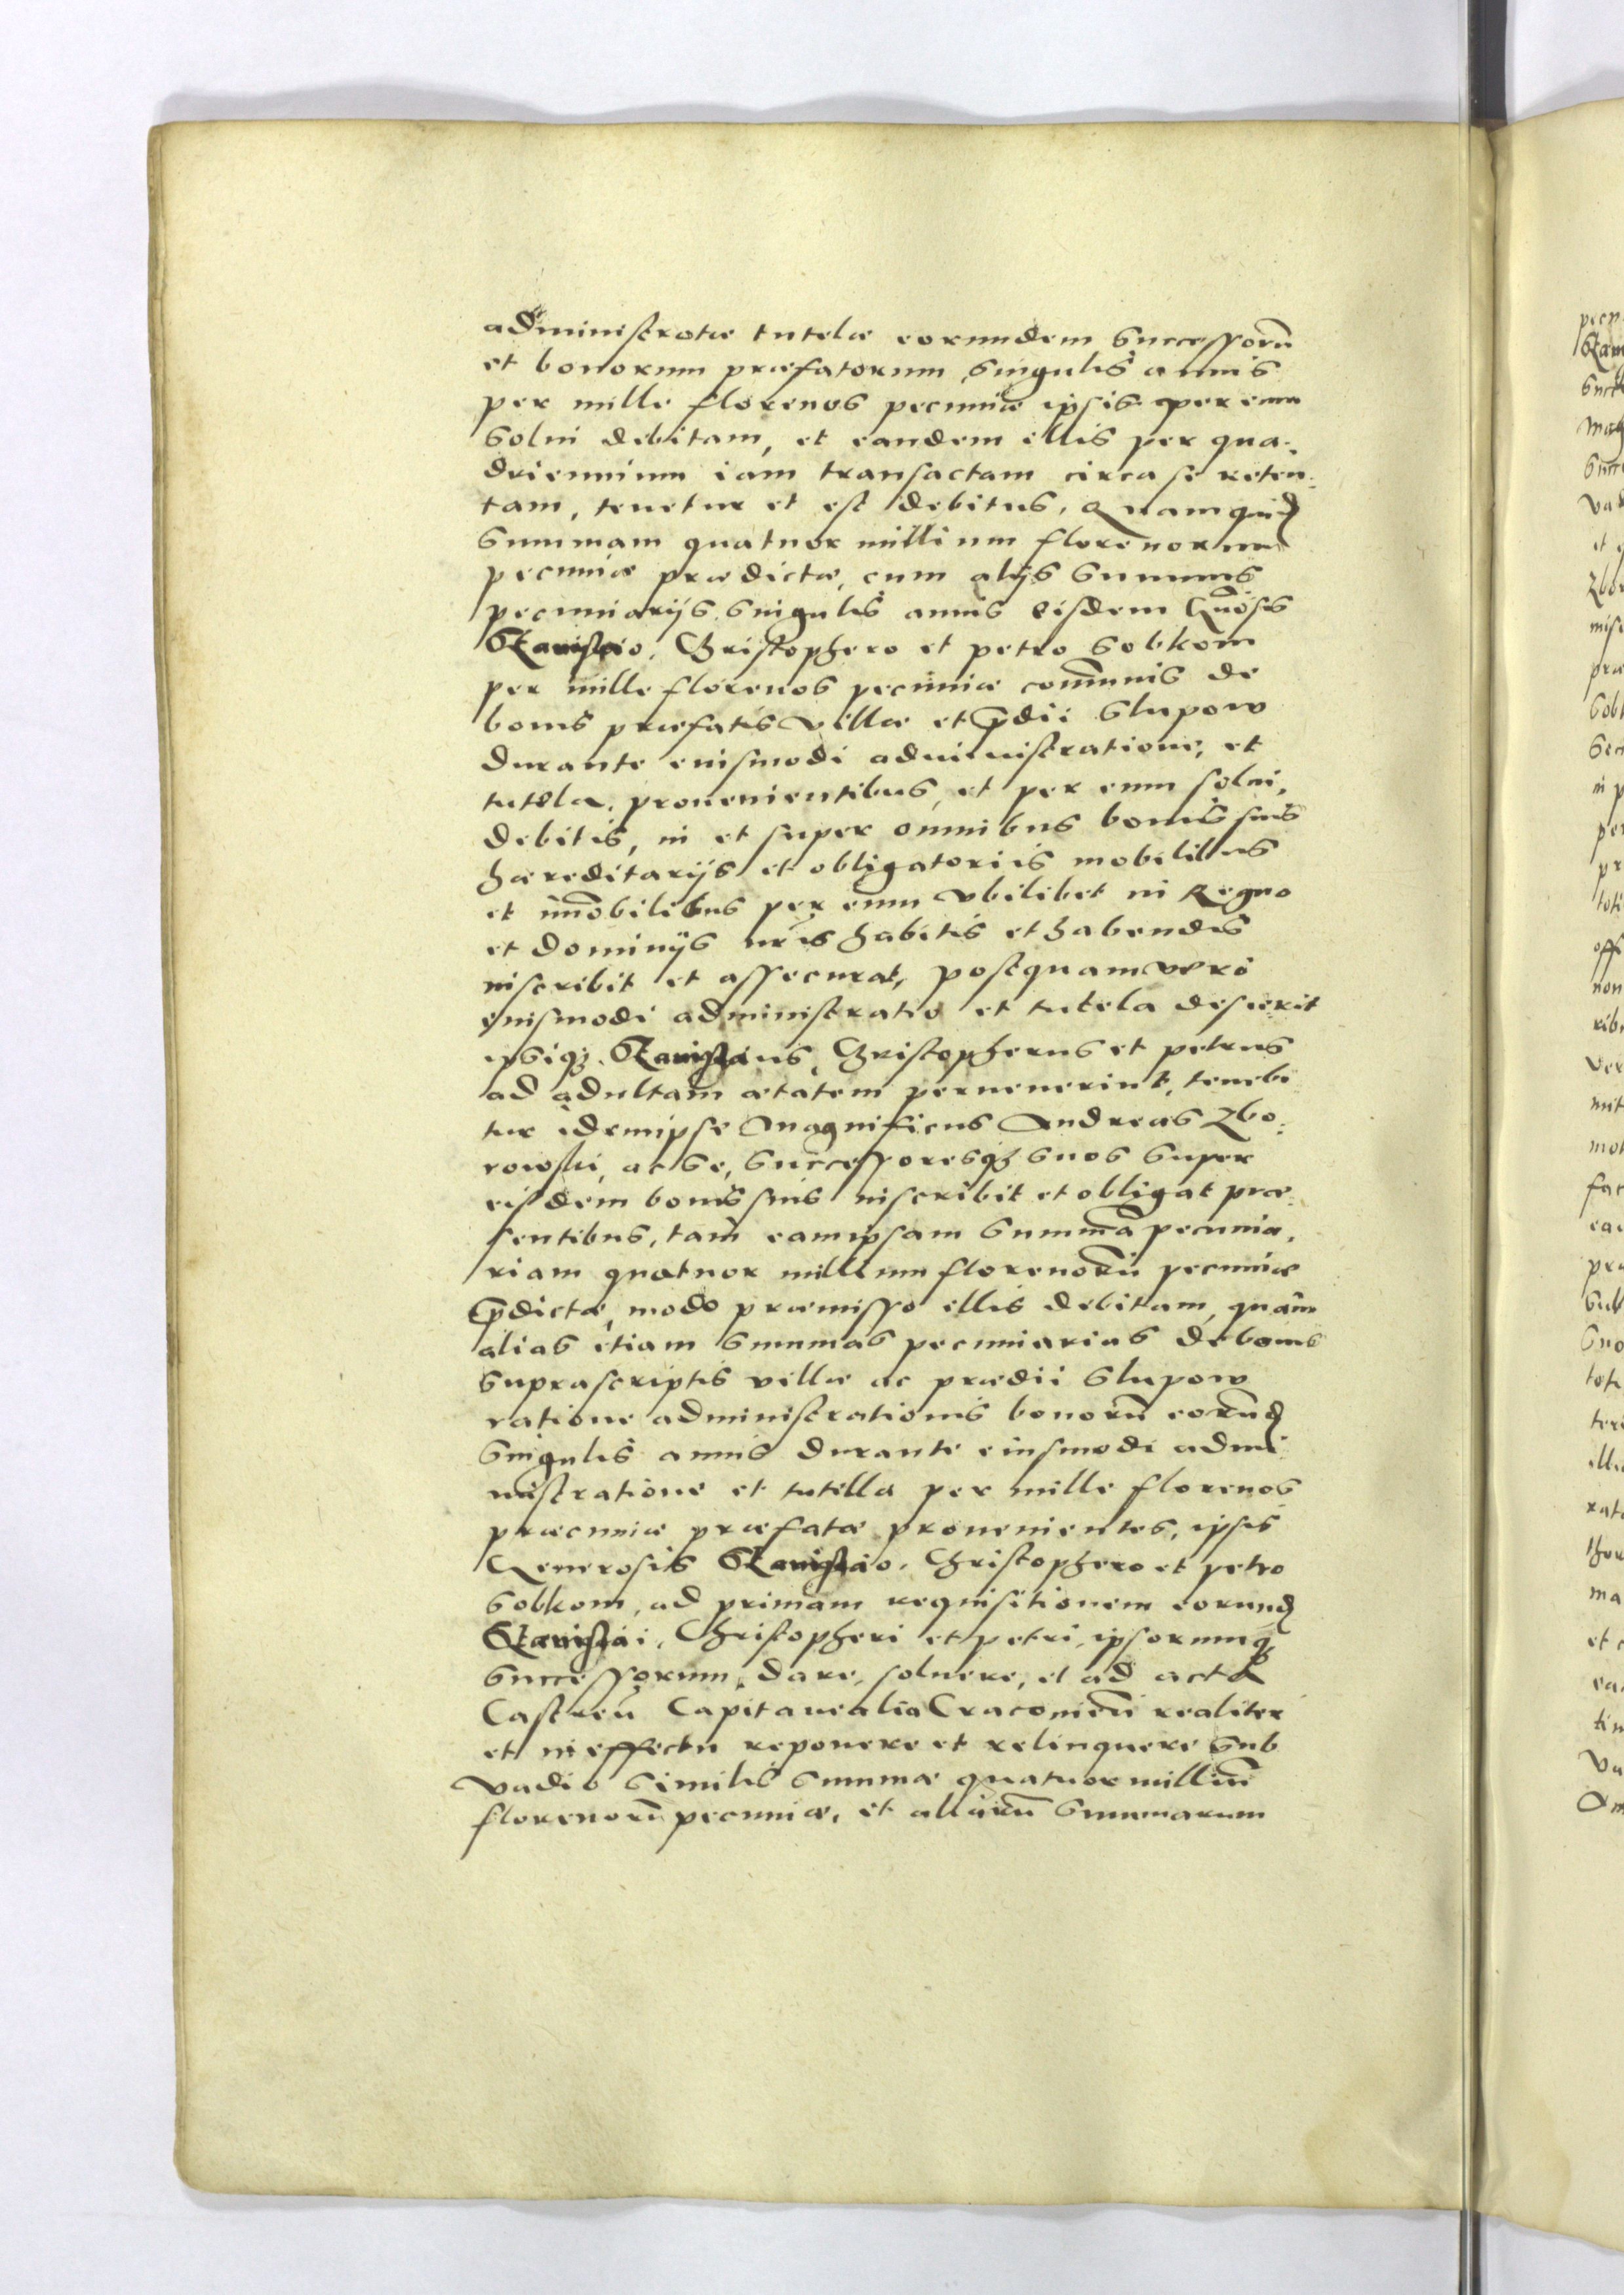 administratæ tutelæ eorundem Successorũ
et bonorum præfatorum, Singulis annis
per mille florenos pecuniæ ipsis per eum
Solui debitam, et eandem illis per qua-
driennium iam transactam circa se reten-
tam, tenetur et est debitus, Quamquid
Summam quatuor millium florenorum
pecuniæ prædictæ, cum alijs Summis
pecuniarijs, Singulis annis eisdem Gnõsis
Stanislao, Christophero et petro Sobkom
per mille florenos pecuniæ com̃unis de
bonis præfatis villæ et p̃dii Slupow
durante eiusmodi administratione, et
tutela, prouenientibus, et per eum solui,
debitis, in et super omnibus bonis suis
hæreditarijs et obligatoriis mobilibus
et im̃obilibus per eum vbilibet in Regno
et Dominijs nr̃is habitis et habendis
inscribit et assecurat, postquam vero
eiusmodi administratio et tutela desierit
ipsiq; Stanislaus, Christopherus et petrus
ad adultam ætatem peruenerint, tenebi
tur idem ipse Magnificus Andreas Zbo-
rowski, ac Se, Successoresq; Suos Super
eisdem bonis suis inscribit et obligat præ-
sentibus, tam eam ipsam Summã pecunia-
riam quatuor millium florenorũ pecuniæ
p̃dictæ, modo præmisso illis debitam, quàm
alias etiam Summas pecuniarias de bonis
Suprascriptis villæ ac prædii Slupow
ratione administrationis bonorũ eorũd
Singulis annis durante eiusmodi admi
nistratione et tutella per mille florenos
præcuniæ præfatæ prouenientes, ipsis
Generosis Stanislao, Christophero et petro
Sobkom, ad primam requisitionem eorund
Stanislai, Christopheri et petri, ipsorumq;
Successorum, dare, soluere, et ad acta
Castreñ Capitanealia Cracouieñ realiter
et in effectu reponere et relinquere Sub
vadio Similis Summæ quatuor milliũ
florenorũ pecuniæ, et aliarũ Summarum